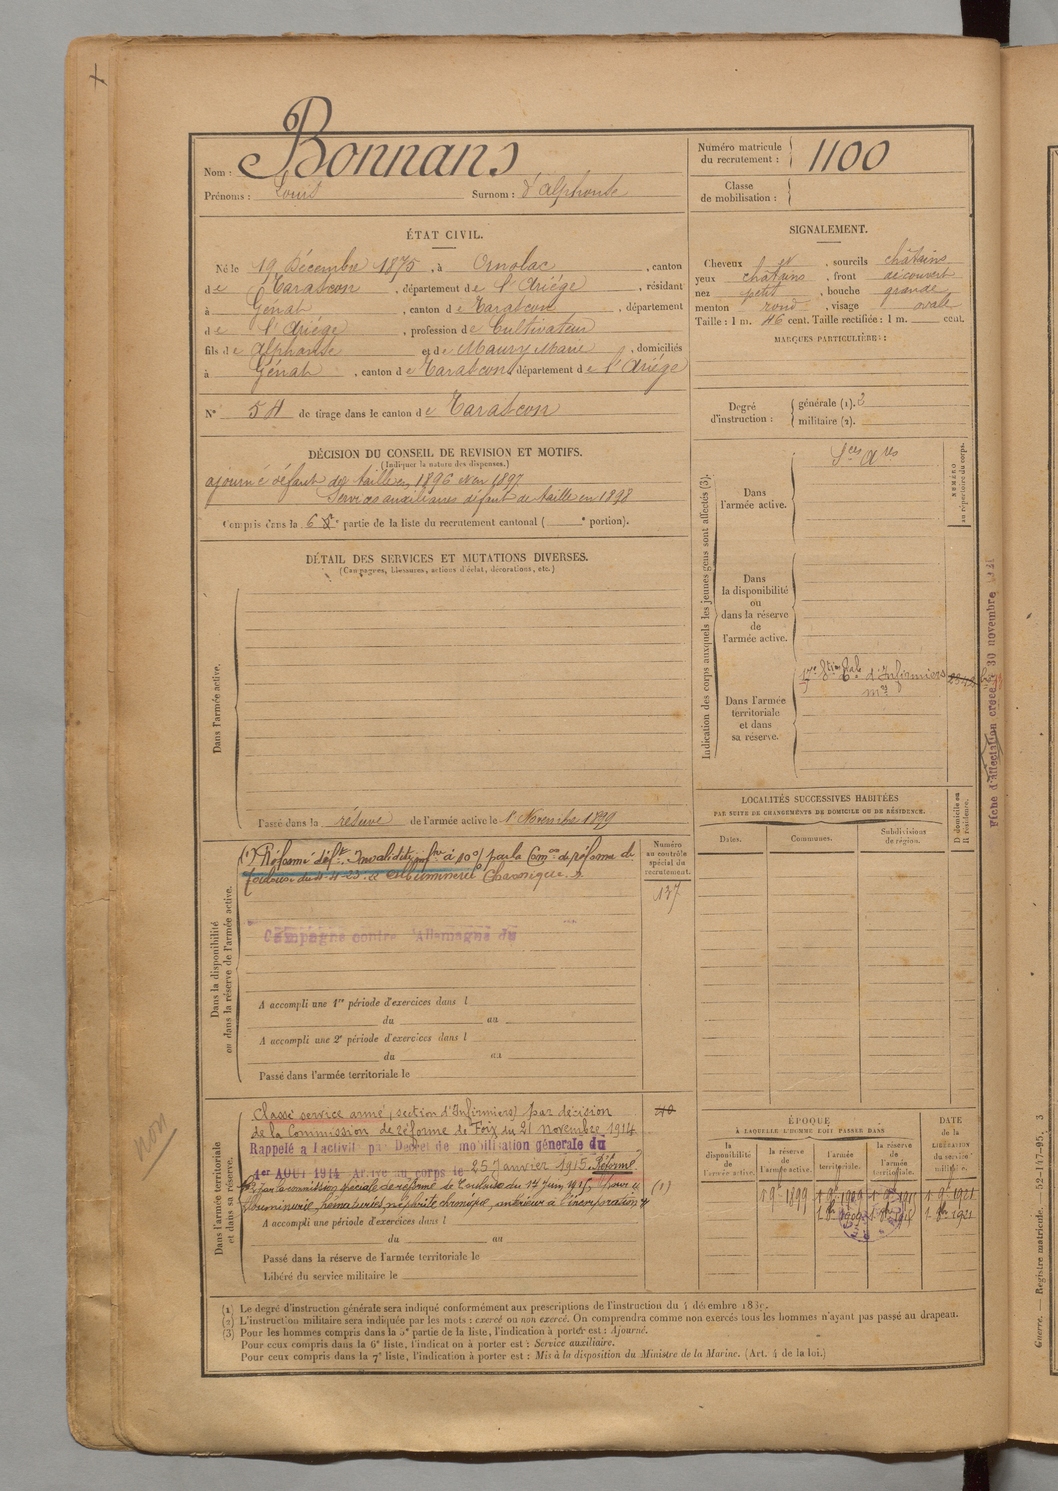 Nom : Bonnans
Prénoms : Louis Surnom : d'Alphonse
Numéro matricule du recrutement : 1100
Classe de mobilisation :
ÉTAT CIVIL.
Né le 19 Décembre 1875, à Ornolac, canton
de Tarascon, département de l'Ariége, résidant
à Génat, canton de Tarascon, département
de l'Ariége, profession de Cultivateur
fils de Alphonse et de Maury Marie, domiciliés
à Génat, canton de Tarascon département de l'Ariége
N° 54 de tirage dans le canton de Tarascon
SIGNALEMENT.
Cheveux, sourcils châtains
yeux châtains, front découvert
nez petit, bouche grande
menton rond, visage ovale
Taille : 1 m. 46 cent. Taille rectifiée : 1 m. cent.
MARQUES PARTICULIÈRES :
Degré d'instruction : générale (1). 2
militaire (2).
DÉCISION DU CONSEIL DE REVISION ET MOTIFS.
(Indiquer la nature des dispenses.)
ajourné défaut de taille en 1896 et en 1897
Services auxiliaires défaut de taille en 1898
Compris dans la 6e partie de la liste du recrutement cantonal ( e portion).
DÉTAIL DES SERVICES ET MUTATIONS DIVERSES.
(Campagnes, blessures, actions d'éclat, décorations, etc.)
Dans l'armée active.
Passé dans la réserve de l'armée active le 1er Novembre 1899
Indication des corps auxquels les jeunes gens sont affectés (3).
Dans l'armée active.
Sces Ares
NUMÉRO au répertoire du corps.
Dans la disponibilité ou dans la réserve de l'armée active.
Dans l'armée territoriale et dans sa réserve.
d'Infirmiers
Fiche d'affectation créée 30 novembre
LOCALITÉS SUCCESSIVES HABITÉES
PAR SUITE DE CHANGEMENTS DE DOMICILE OU DE RÉSIDENCE.
Dates. Communes. Subdivisions de région. D domicile ou R résidence.
Dans la disponibilité ou dans la réserve de l'armée active.
(1) Réformé déft. Invalidité infre à 10 % par la Comon de réforme de
Toulouse du 4-4-23. Albuminurie Chronique.
Numéro au contrôle spécial du recrutement.
137
Campagne contre l'Allemagne du
A accompli une 1re période d'exercices dans l
du au
A accompli une 2e période d'exercices dans l
du au
Passé dans l'armée territoriale le
Dans l'armée territoriale et dans sa réserve.
Classé service armé, (section d'Infirmiers) par décision
de la Commission de réforme de Foix du 21 novembre 1914
Rappelé à l'activité par Décret de mobilisation générale du
1er AOUT 1914 Arrivé au corps le 25 Janvier 1915. Réformé
par la commission spéciale de réforme de Toulouse du 17 Juin 1915 pour (1)
albuminurie, hématurie, néphrite chronique, antérieur à l'incorporation
A accompli une période d'exercices dans l
du au
Passé dans la réserve de l'armée territoriale le
Libéré du service militaire le
ÉPOQUE
À LAQUELLE L'HOMME DOIT PASSER DANS
la disponibilité de l'armée active. la réserve de l'armée active. l'armée territoriale. la réserve de l'armée territoriale. DATE de la LIBÉRATION du service militaire.
1 9e 1899 1 9e 1909 1 9e 1915 1 9e 1921
1 8bre 1909 1 8bre 1915 1 8bre 1921
(1) Le degré d'instruction générale sera indiqué conformément aux prescriptions de l'instruction du 4 décembre 1889.
(2) L'instruction militaire sera indiquée par les mots : exercé ou non exercé. On comprendra comme non exercés tous les hommes n'ayant pas passé au drapeau.
(3) Pour les hommes compris dans la 5e partie de la liste, l'indication à porter est : Ajourné.
Pour ceux compris dans la 6e liste, l'indication à porter est : Service auxiliaire.
Pour ceux compris dans la 7e liste, l'indication à porter est : Mis à la disposition du Ministre de la Marine. (Art. 4 de la loi.)
Guerre. — Registre matricule. 52-147-95. 3
non